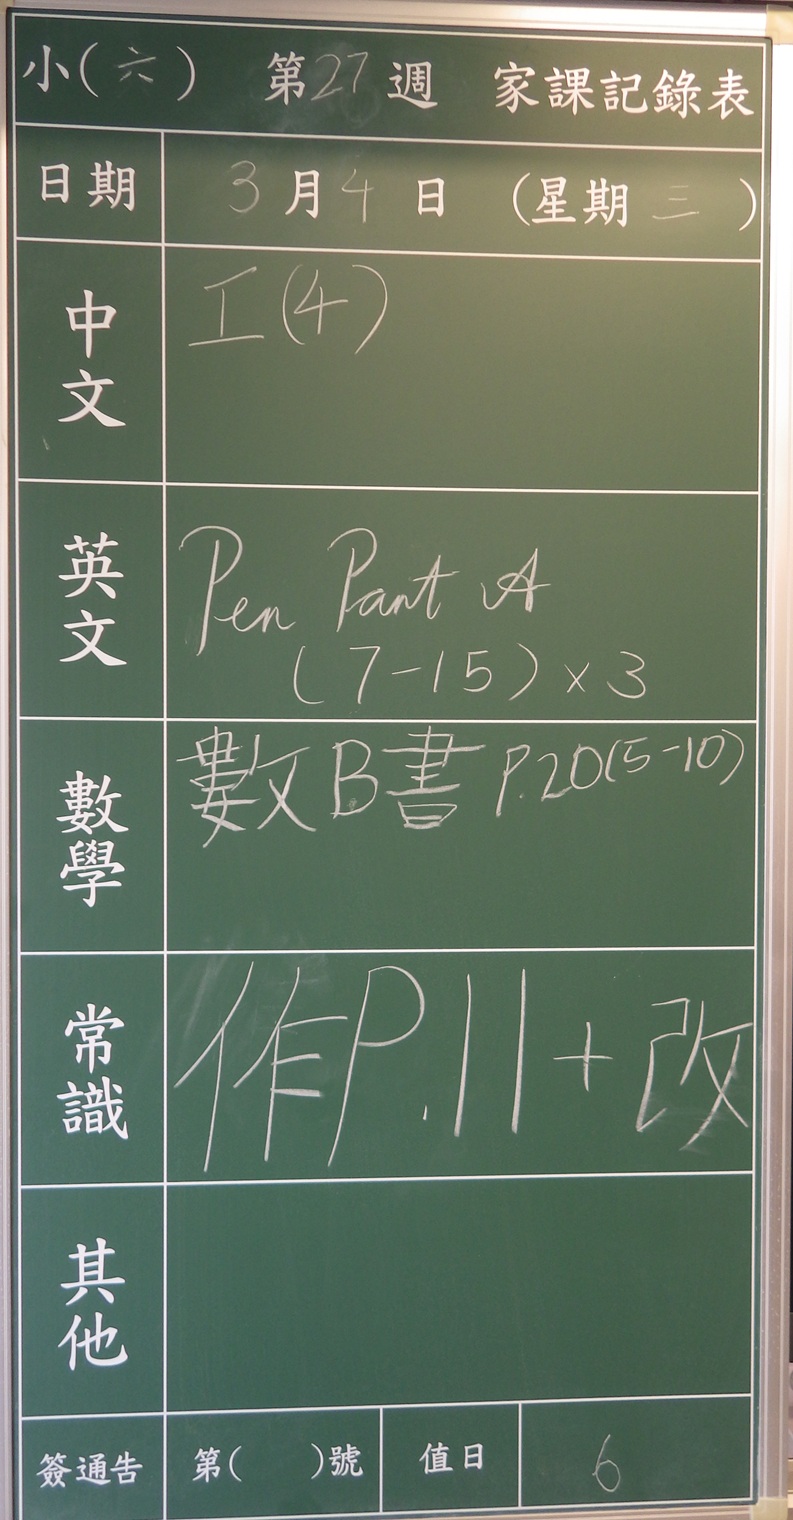 小(六) 第27週 家課記錄表
日期 3月4日 (星期三)
中文 工(4)
英文 Pen Part A
(7-15)×3
數學 數B書 P.20(5-10)
常識 作P.11+改
其他
簽通告 第( )號 值日 6